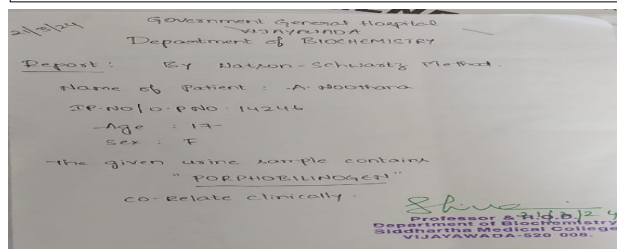 21/3/24
Government General Hospital
VIJAYAWADA
Department of BIOCHEMISTRY
Report : By Watson-Schwartz Method.
Name of Patient : A. Noothana
IP.NO/O.P NO. 14246
Age : 17
Sex : F
The given urine sample contains
"PORPHOBILINOGEN"
Co-Relate clinically.
21/3/24
Professor & H.O.D.
Department of Biochemistry
Siddhartha Medical College
VIJAYAWADA-520 008.